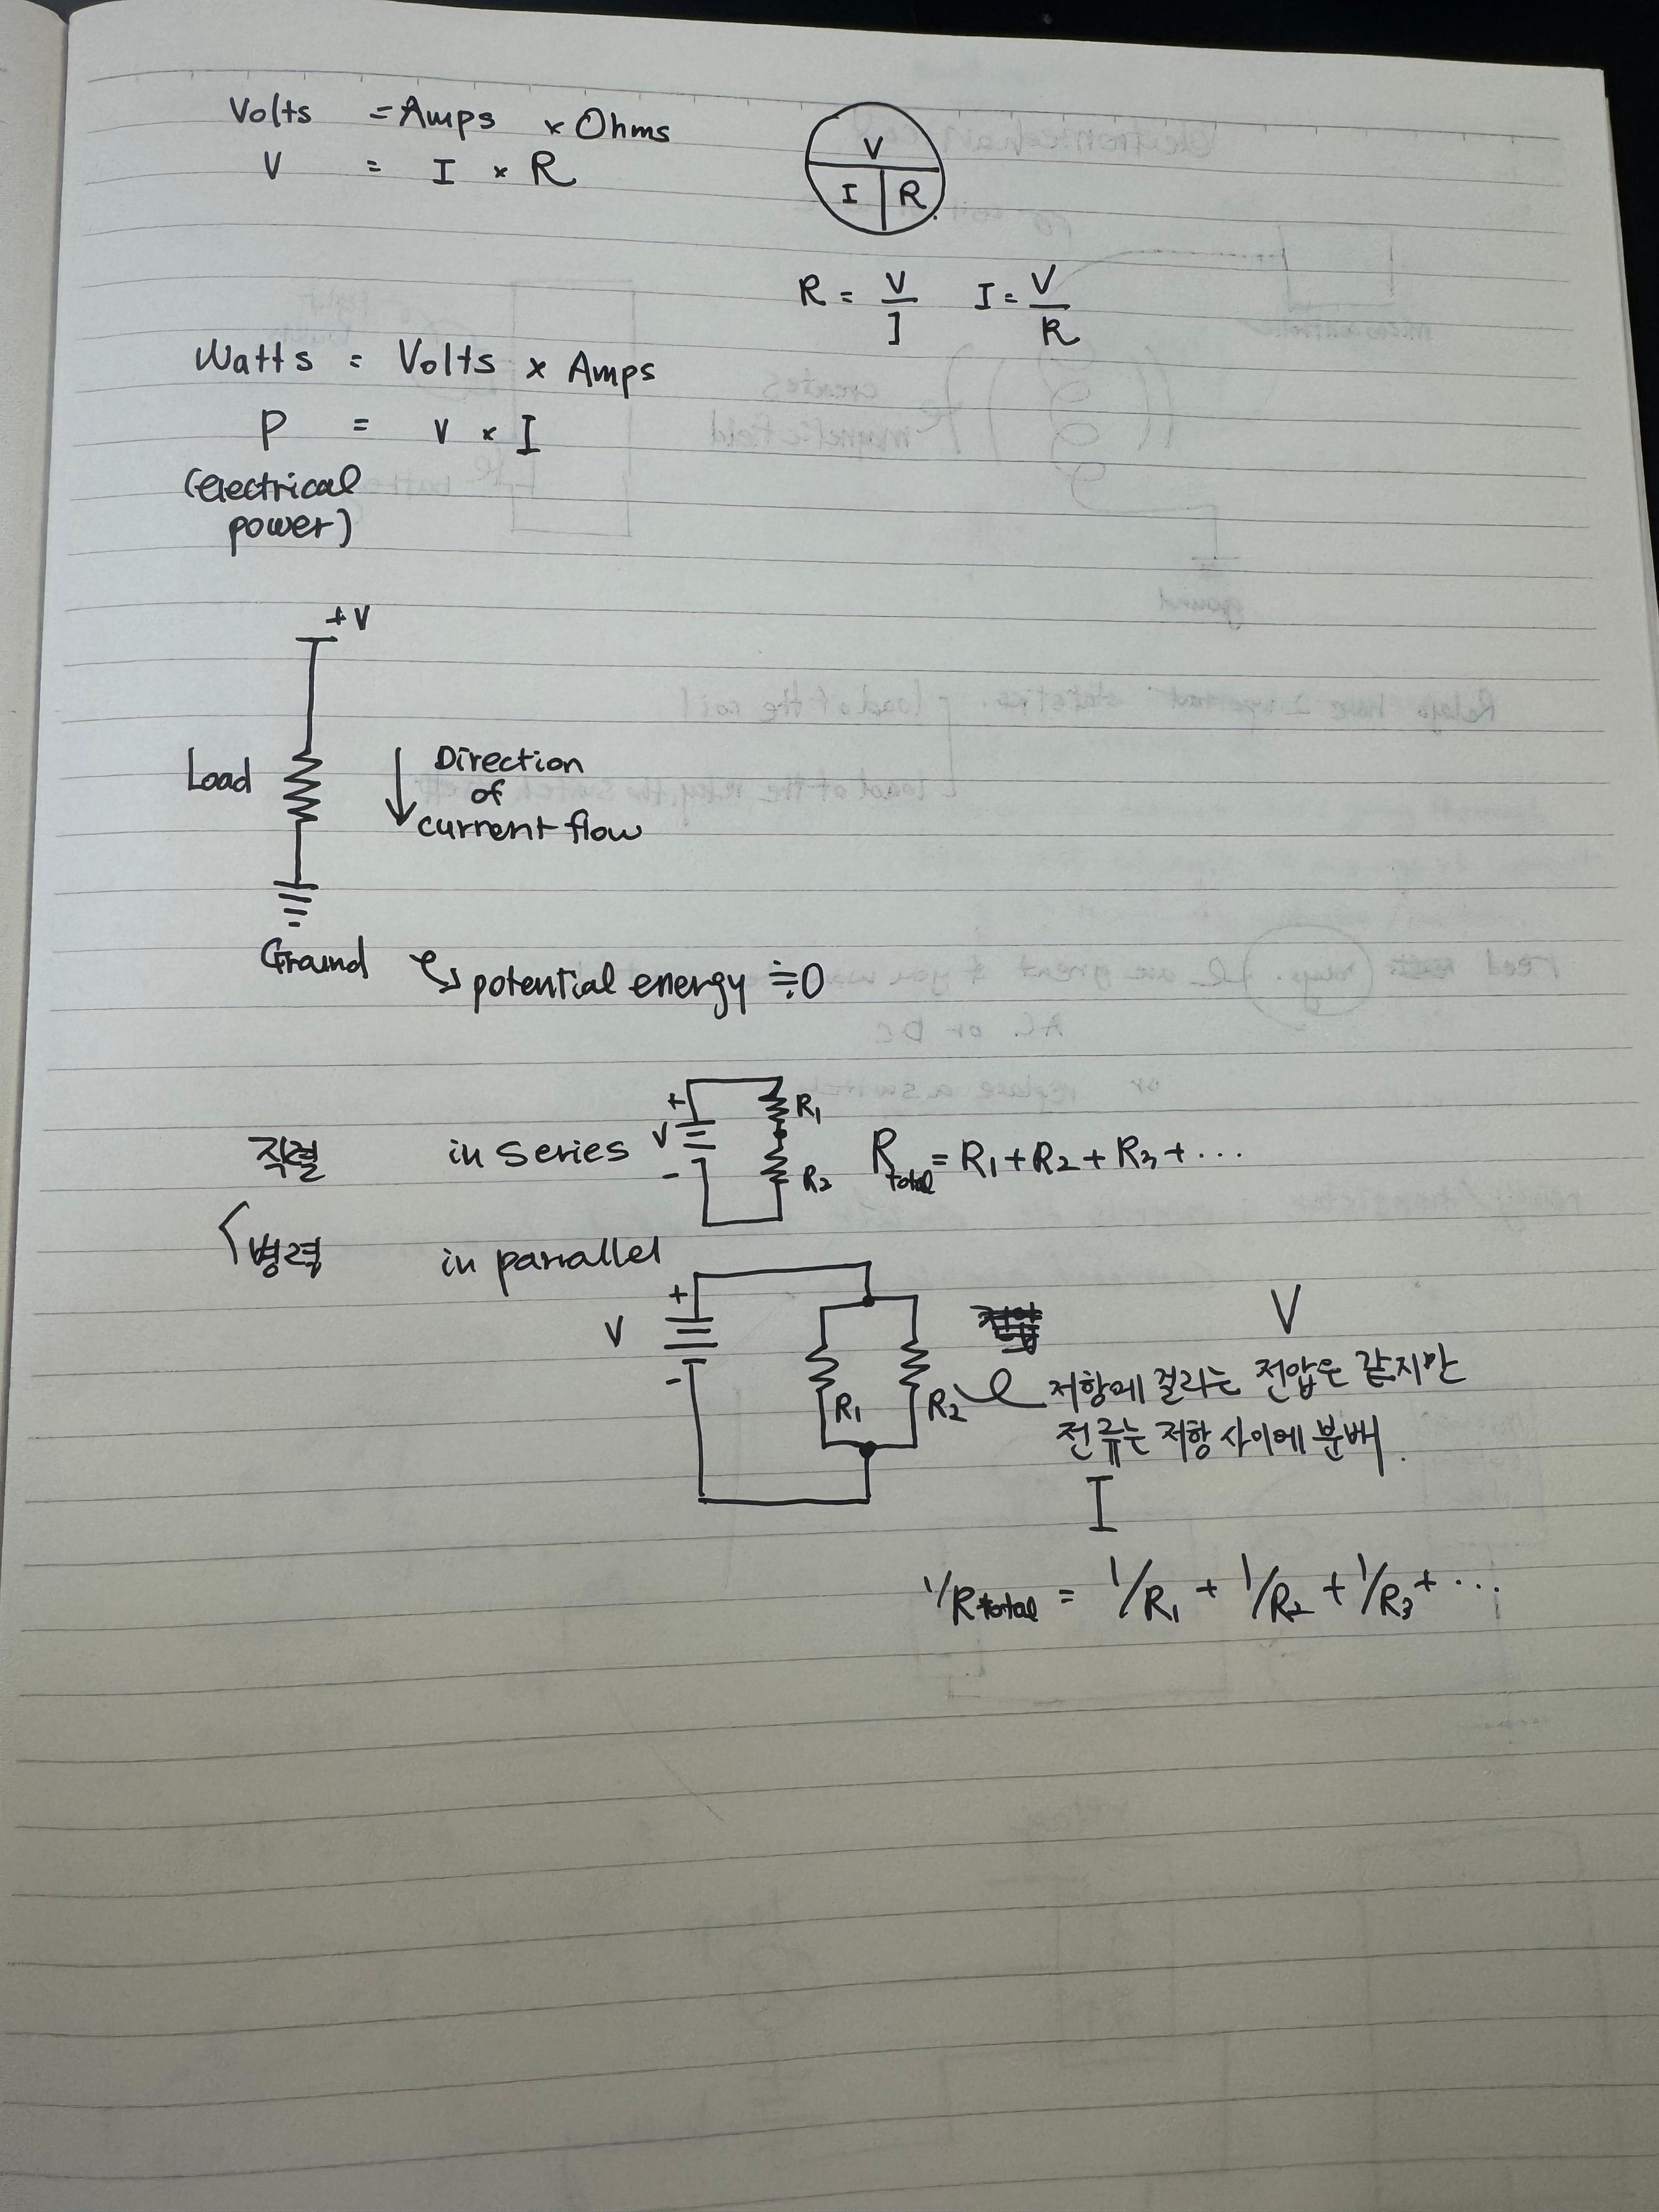 Volts = Amps x Ohms
V = I x R
V
I R
R = V/I I = V/R
Watts = Volts x Amps
P = V x I
(electrical
power)
+V
Load
Direction
of
current flow
Ground ↳ potential energy ≒0
직렬 in series
+ V -
R1
R2
Rtotal = R1+R2+R3+...
병렬 in parallel
+
V
-
R1 R2
V
저항에 걸리는 전압은 같지만
전류는 저항 사이에 분배.
I
1/Rtotal = 1/R1 + 1/R2 + 1/R3 + ...